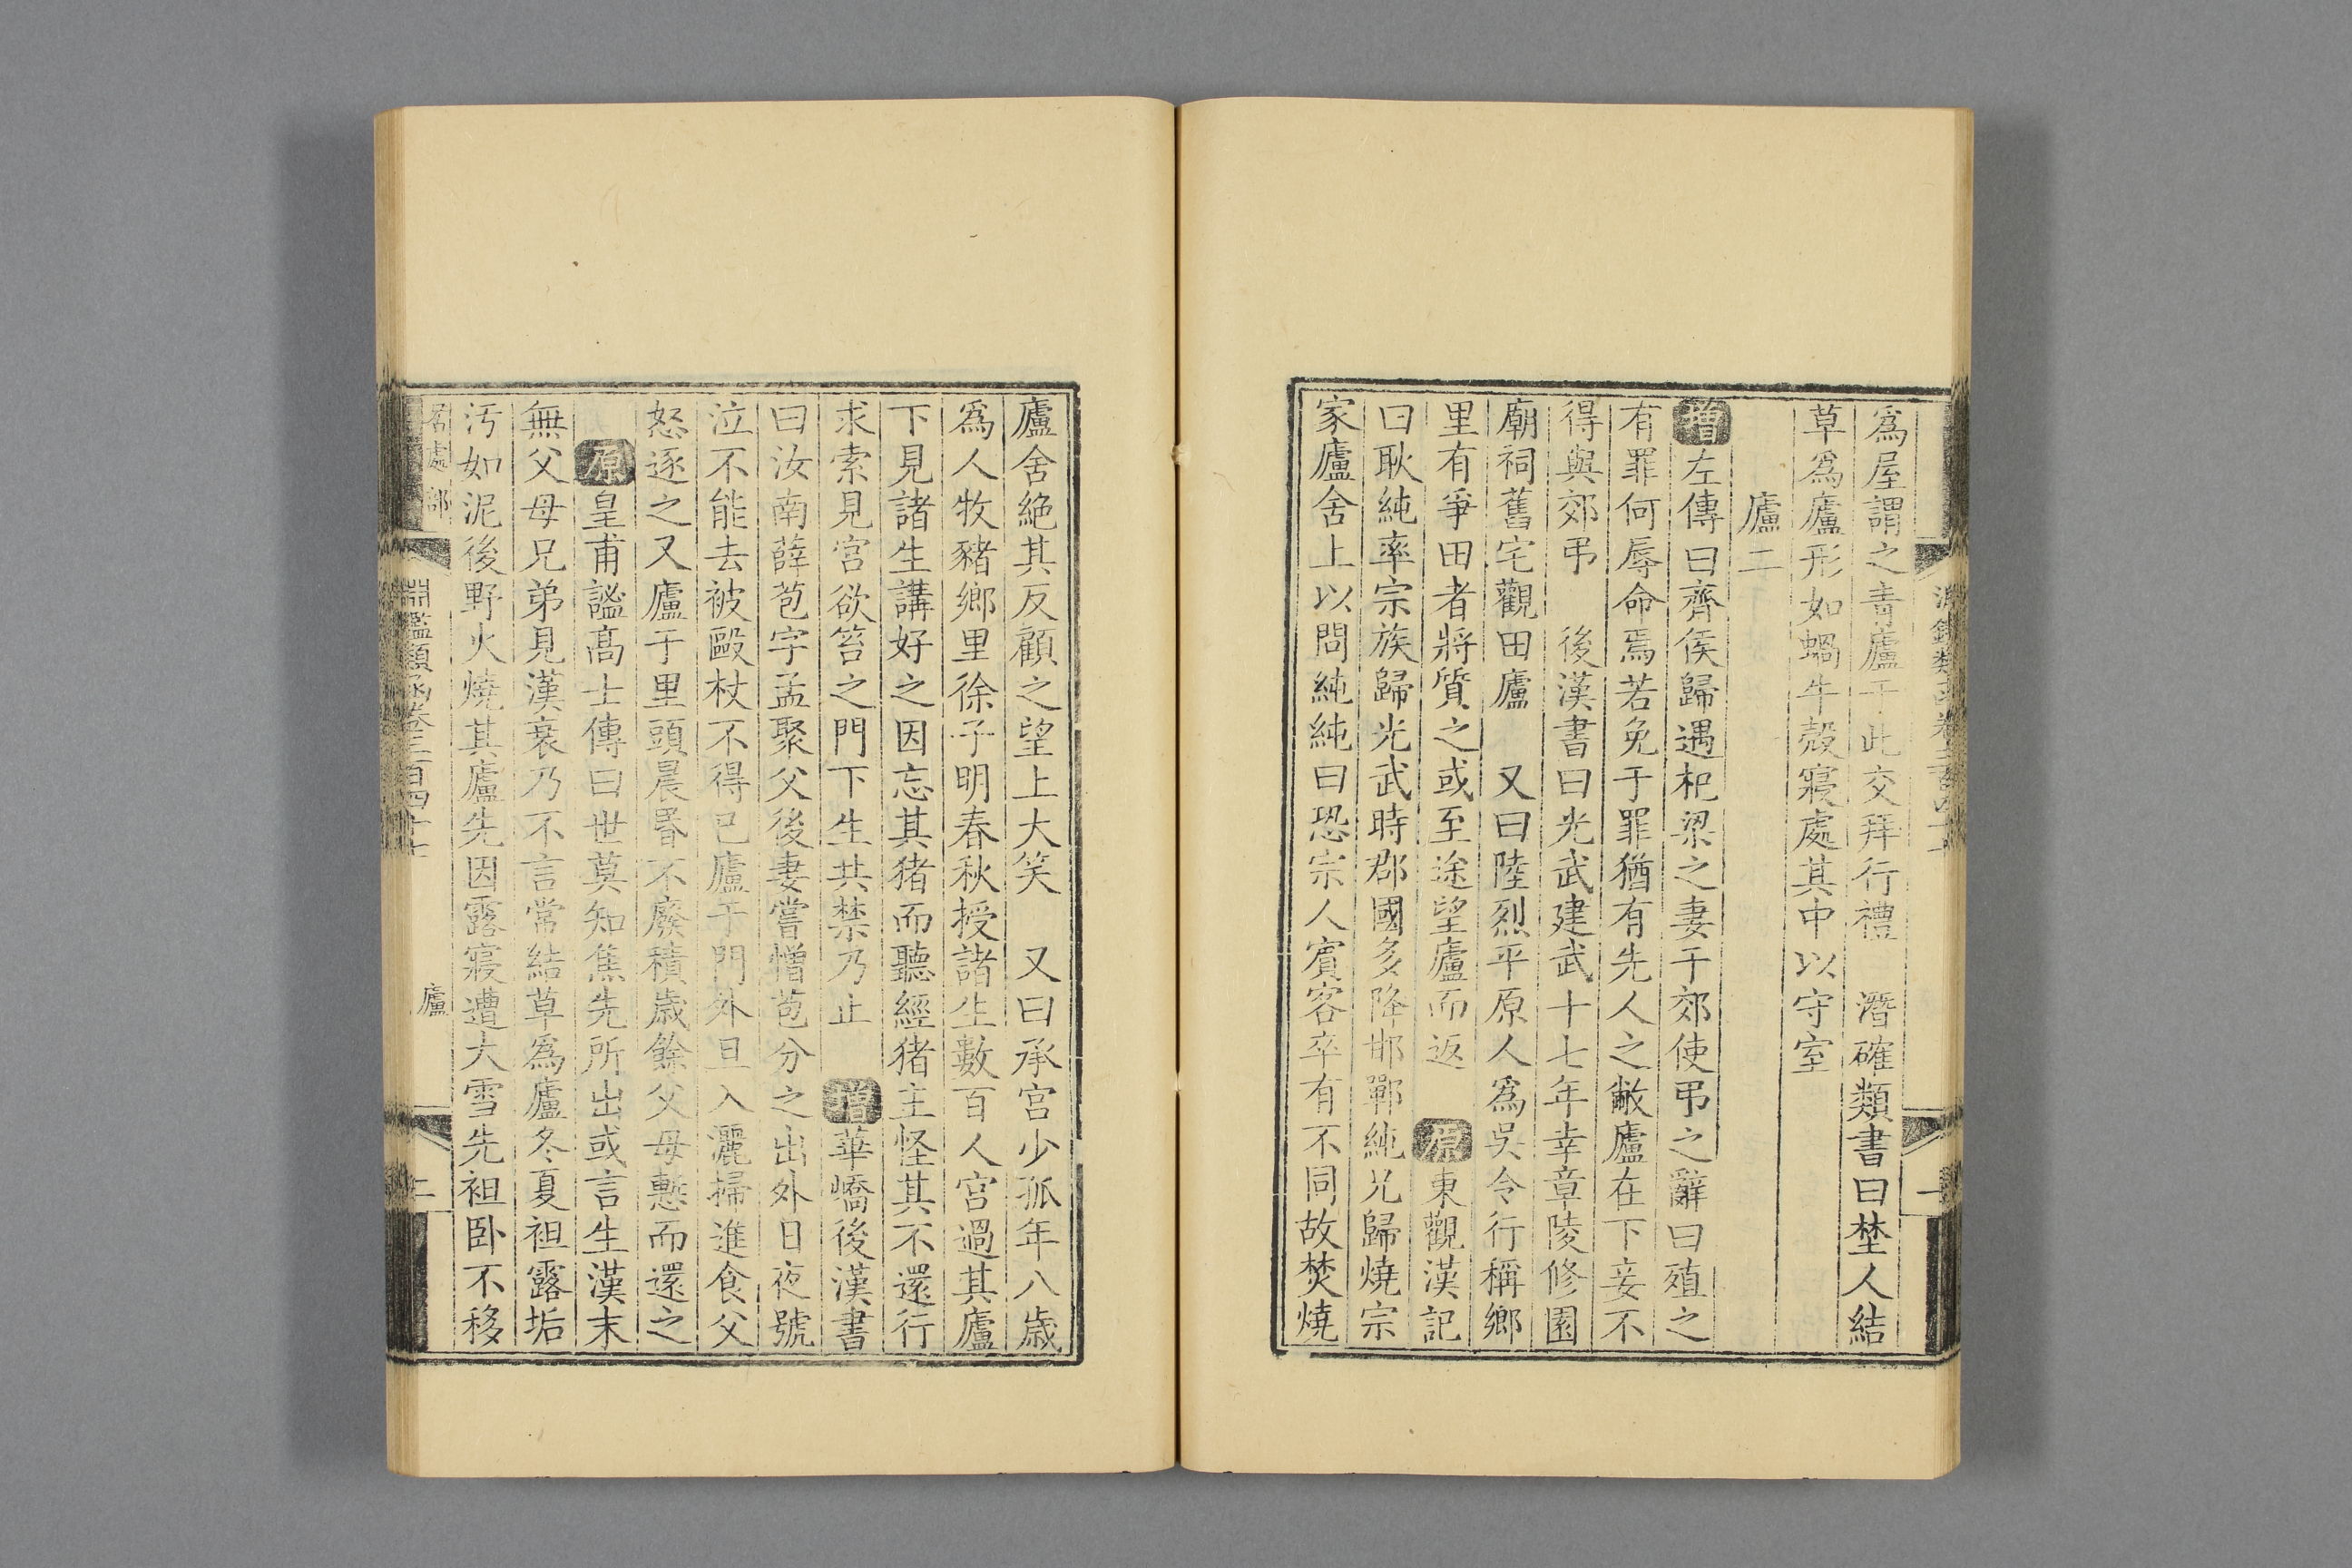 爲屋謂之青廬于此交拜行禮　潛確類書曰埜人結
草爲廬形如蝸牛殼寢處其中以守室
廬二
增左傳曰齊侯歸遇杞梁之妻于郊使弔之辭曰殖之
有罪何辱命焉若免于罪猶有先人之敝廬在下妾不
得與郊弔　後漢書曰光武建武十七年幸章陵修園
廟祠舊宅觀田廬　又曰陸烈平原人爲吳令行稱鄉
里有爭田者將質之或至途望廬而返　原東觀漢記
曰耿純率宗族歸光武時郡國多降邯鄲純兄歸燒宗
家廬舍上以問純純曰恐宗人賓客卒有不同故焚燒
廬舍絶其反顧之望上大笑　又曰承宮少孤年八歲
爲人牧豬鄉里徐子明春秋授諸生數百人宮過其廬
下見諸生講好之因忘其猪而聽經猪主怪其不還行
求索見宮欲笞之門下生共禁乃止　增華嶠後漢書
曰汝南薛苞字孟聚父後妻嘗憎苞分之出外日夜號
泣不能去被毆杖不得已廬于門外旦入灑掃進食父
怒逐之又廬于里頭晨昬不廢積歲餘父母慙而還之
原皇甫謐髙士傳曰世莫知焦先所出或言生漢末
無父母兄弟見漢衰乃不言常結草爲廬冬夏袒露垢
汚如泥後野火燒其廬先因露寢遭大雪先袒卧不移
居處部
淵鑑類函卷三百四十七
廬
二